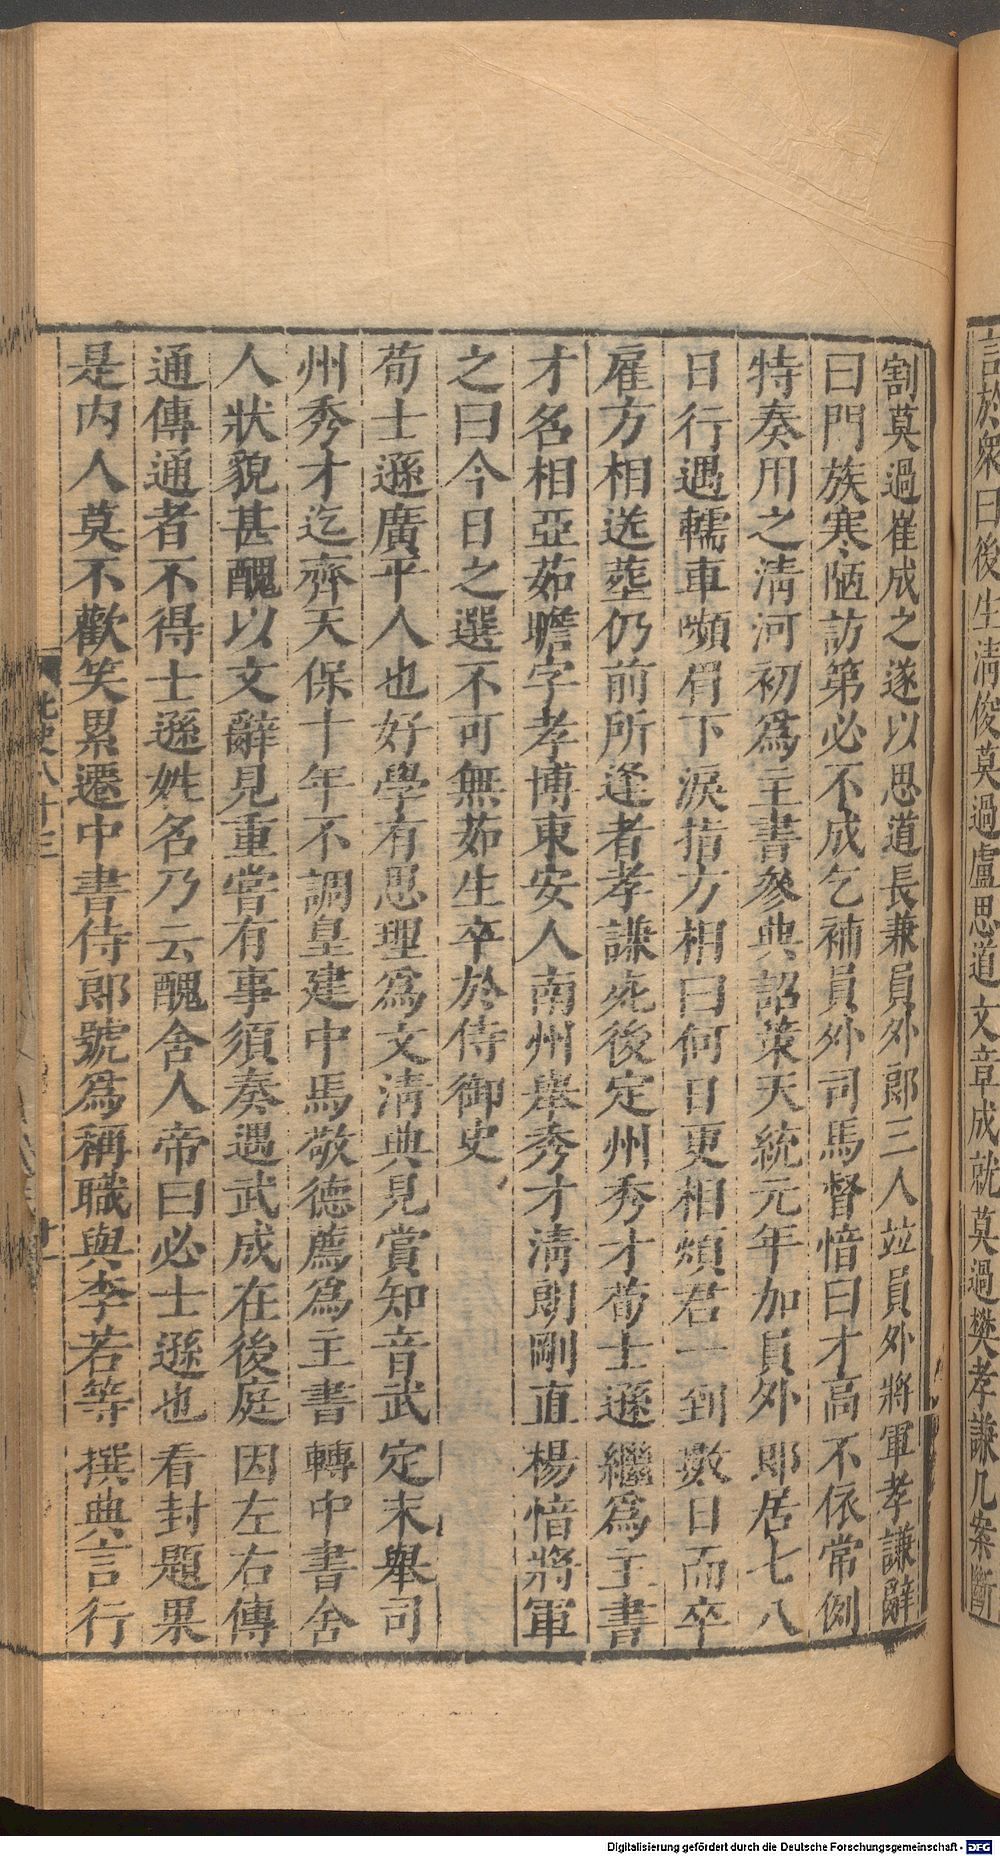 言於衆曰後生清俊莫過盧思道文章成就莫過樊孝謙几案斷
割莫過崔成之遂以思道長兼員外郎三人並員外將軍孝謙辭
曰門族寒陋訪第必不成乞補員外司馬督愔曰才高不依常例
特奏用之清河初爲主書參典詔策天統元年加員外郎居七八
日行遇轜車嚬眉下淚指方相曰何日更相煩君一到數日而卒
雇方相送葬仍前所逢者孝謙死後定州秀才荀士遜繼爲主書
才名相亞茹瞻字孝博東安人南州舉秀才清朗剛直楊愔將軍
之曰今日之選不可無茹生卒於侍御史
荀士遜廣平人也好學有思理爲文清典見賞知音武定末舉司
州秀才迄齊天保十年不調皇建中馬敬德薦爲主書轉中書舍
人狀貌甚醜以文辭見重嘗有事須奏遇武成在後庭因左右傳
通傳通者不得士遜姓名乃云醜舍人帝曰必士遜也看封題果
是内人莫不歡笑累遷中書侍郎號爲稱職與李若等撰典言行
北史八十三
十一
Digitalisierung gefördert durch die Deutsche Forschungsgemeinschaft - DFG